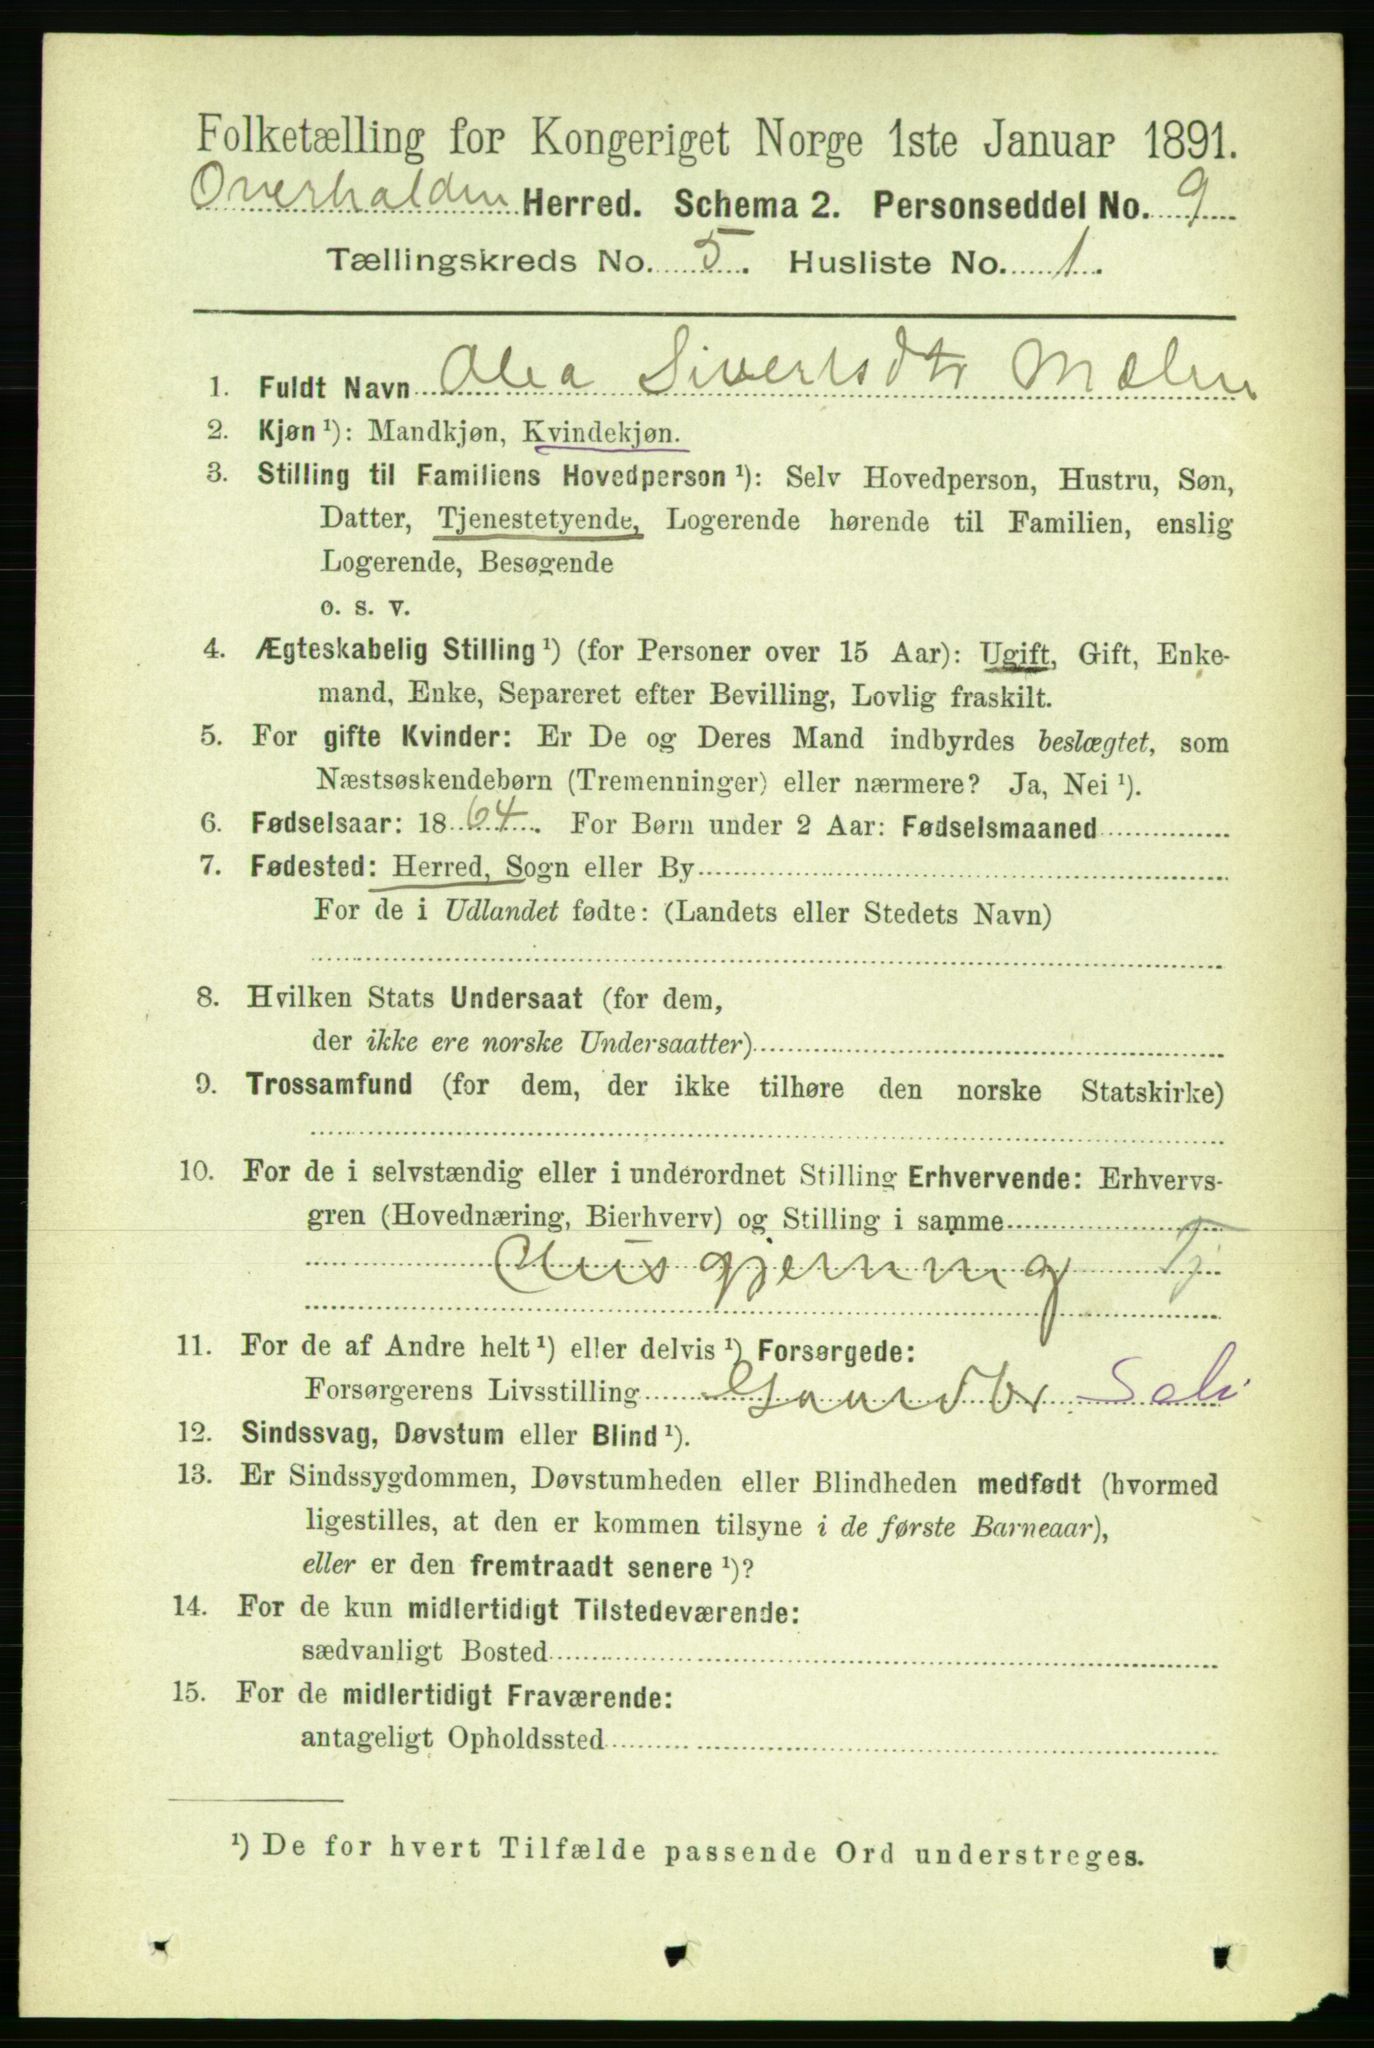 Folketælling for Kongeriget Norge 1ste Januar 1891.
Overhalden Herred. Schema 2. Personseddel No. 9
Tællingskreds No. 5. Husliste No. 1.
1. Fuldt Navn Olea Sivertsdtr Mælen
2. Kjøn ¹): Mandkjøn, Kvindekjøn.
3. Stilling til Familiens Hovedperson ¹): Selv Hovedperson, Hustru, Søn,
Datter, Tjenestetyende, Logerende hørende til Familien, enslig
Logerende, Besøgende
o. s. v.
4. Ægteskabelig Stilling ¹) (for Personer over 15 Aar): Ugift, Gift, Enke-
mand, Enke, Separeret efter Bevilling, Lovlig fraskilt.
5. For gifte Kvinder: Er De og Deres Mand indbyrdes beslægtet, som
Næstsøskendebørn (Tremenninger) eller nærmere? Ja, Nei ¹).
6. Fødselsaar: 1864. For Børn under 2 Aar: Fødselsmaaned
7. Fødested: Herred, Sogn eller By
For de i Udlandet fødte: (Landets eller Stedets Navn)
8. Hvilken Stats Undersaat (for dem,
der ikke ere norske Undersaatter)
9. Trossamfund (for dem, der ikke tilhøre den norske Statskirke)
10. For de i selvstændig eller i underordnet Stilling Erhvervende: Erhvervs-
gren (Hovednæring, Bierhverv) og Stilling i samme
Husgjerning Tj
11. For de af Andre helt ¹) eller delvis ¹) Forsørgede:
Forsørgerens Livsstilling Gaardbr. Selv
12. Sindssvag, Døvstum eller Blind ¹).
13. Er Sindssygdommen, Døvstumheden eller Blindheden medfødt (hvormed
ligestilles, at den er kommen tilsyne i de første Barneaar),
eller er den fremtraadt senere ¹)?
14. For de kun midlertidigt Tilstedeværende:
sædvanligt Bosted
15. For de midlertidigt Fraværende:
antageligt Opholdssted
¹) De for hvert Tilfælde passende Ord understreges.